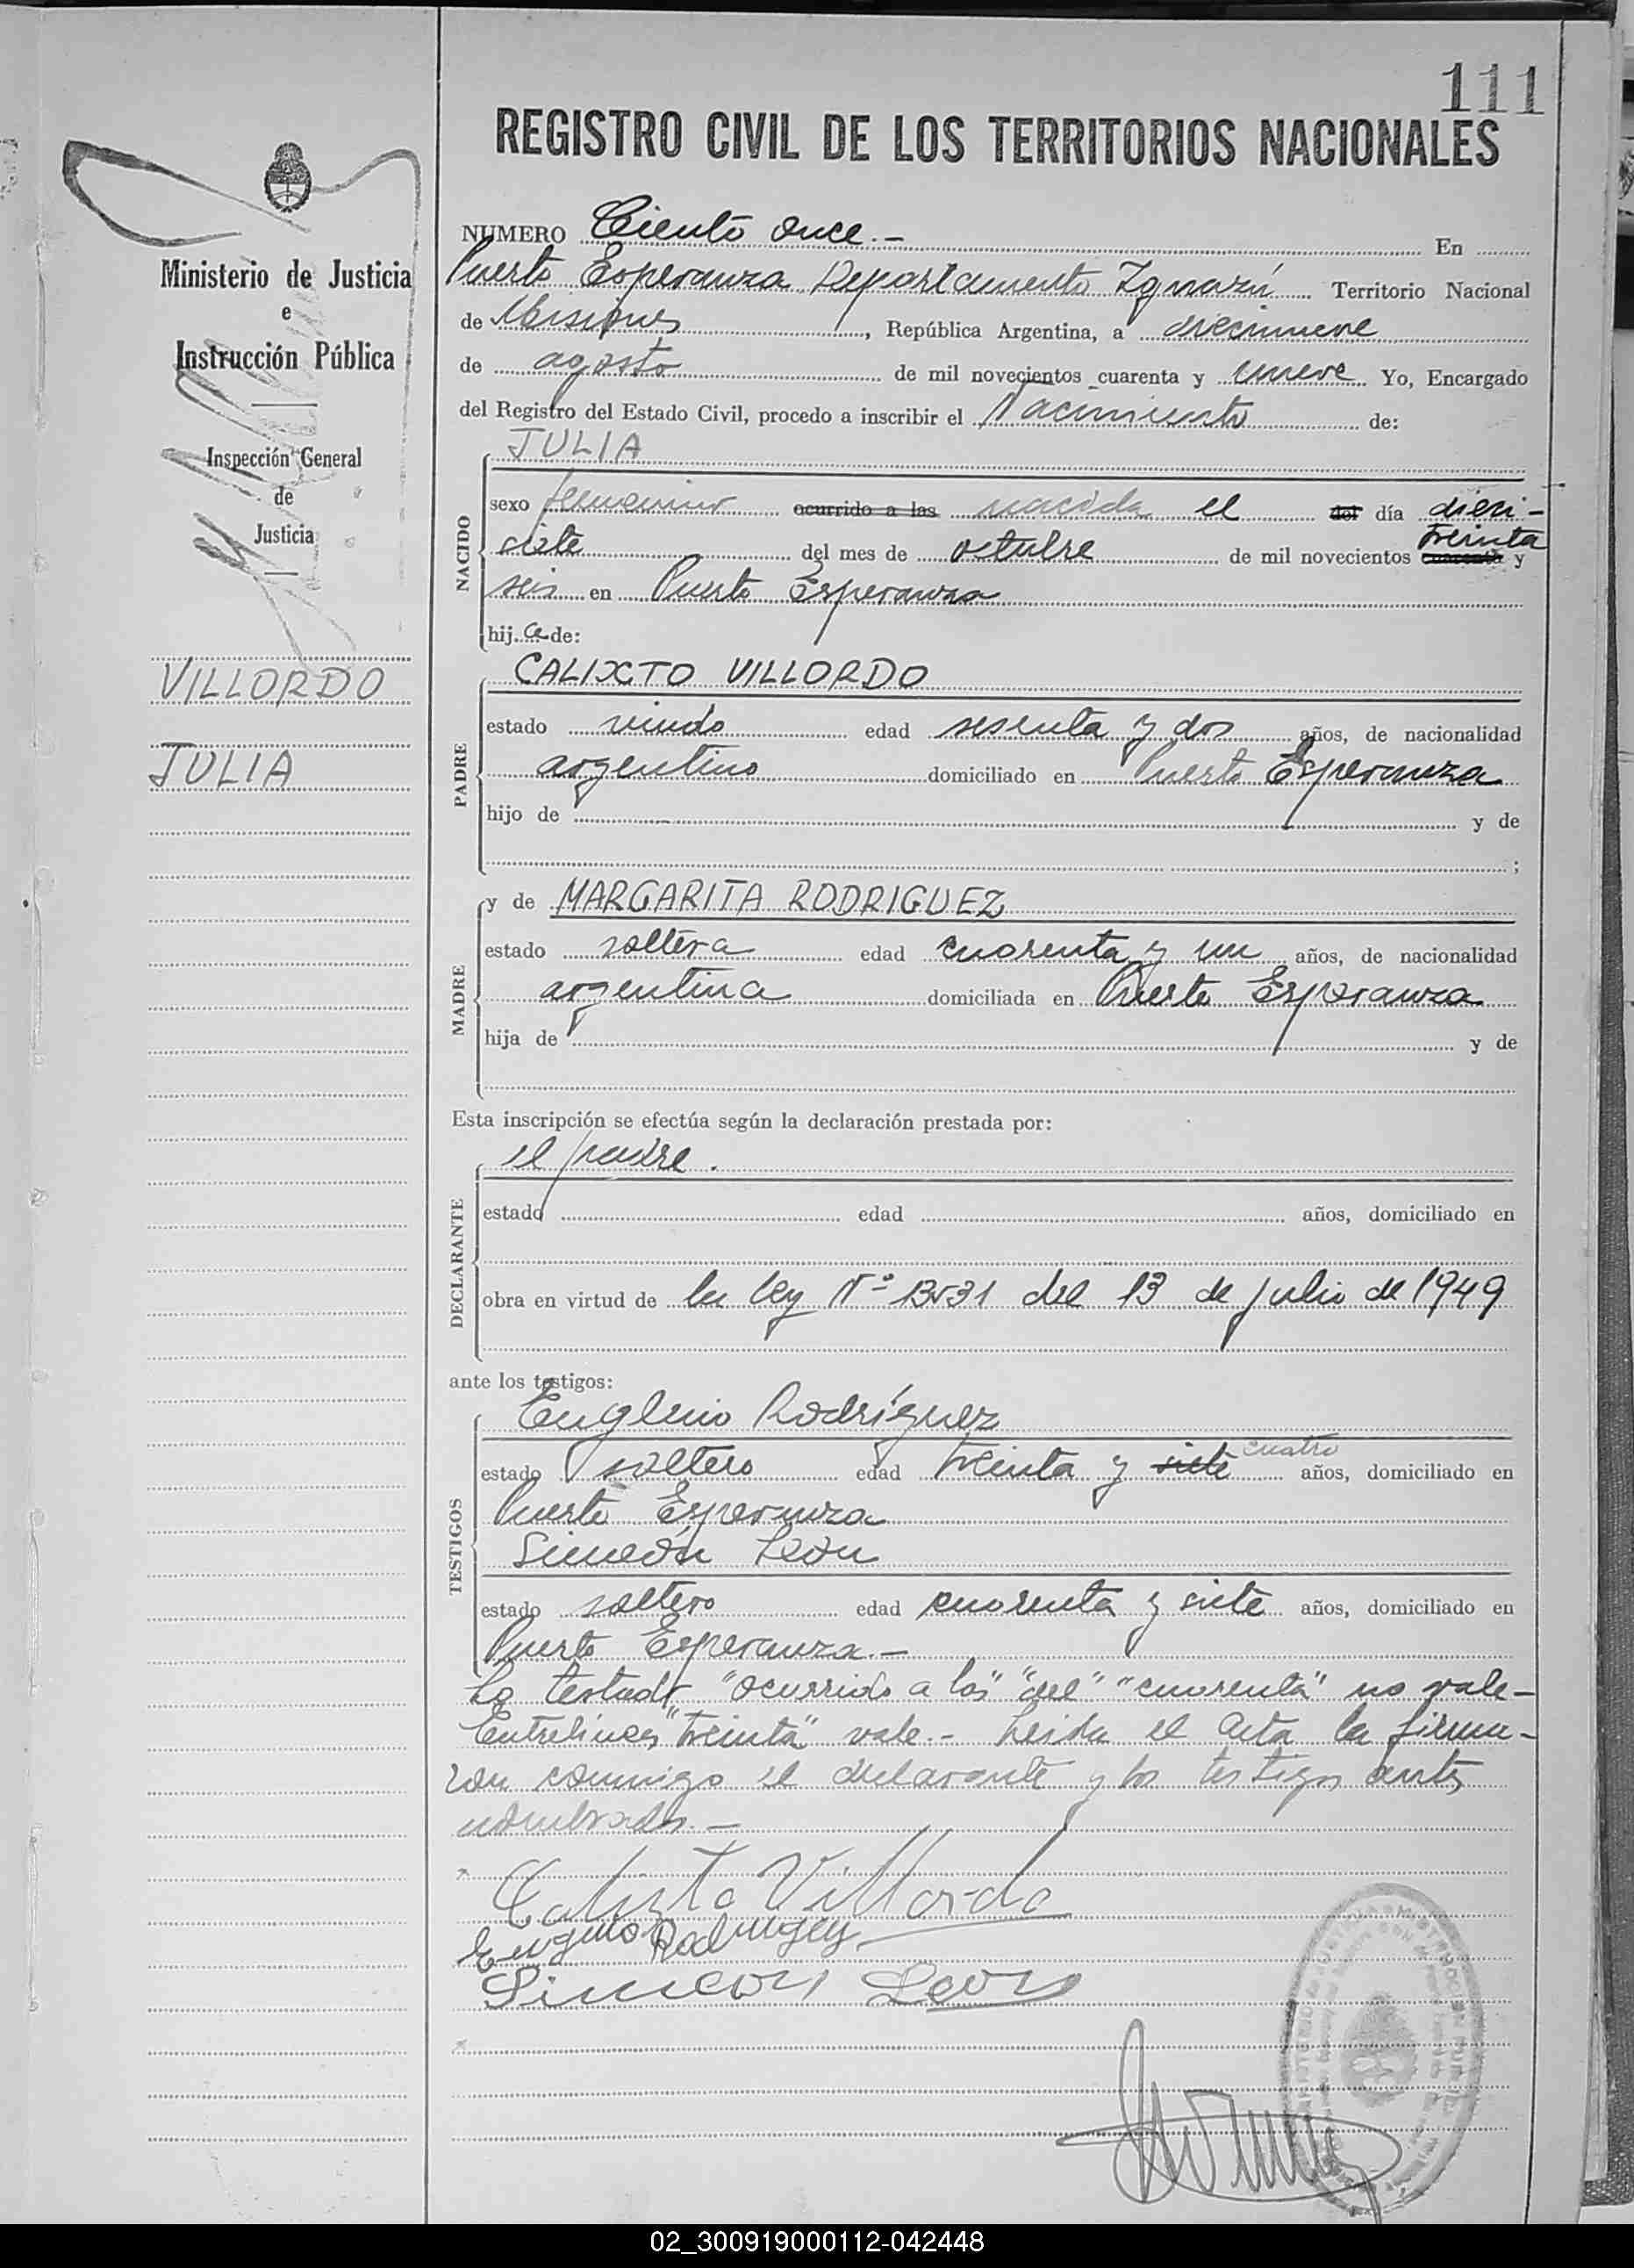 111
REGISTRO CIVIL DE LOS TERRITORIOS NACIONALES
Ministerio de Justicia
e
Instrucción Pública
Inspección General
de
Justicia
VILLORDO
JULIA
NUMERO Ciento once.- En
Puerto Esperanza Departamento Iguazú Territorio Nacional
de Misiones, República Argentina, a diecinueve
de agosto de mil novecientos cuarenta y nueve Yo, Encargado
del Registro del Estado Civil, procedo a inscribir el Nacimiento de:
JULIA
NACIDO
sexo femenino ocurrido a las nacida el del día dieci-
siete del mes de octubre de mil novecientos cuarenta treinta y
seis en Puerto Esperanza
hija de:
PADRE
CALIXTO VILLORDO
estado viudo edad sesenta y dos años, de nacionalidad
argentino domiciliado en Puerto Esperanza
hijo de y de
;
MADRE
y de MARGARITA RODRIGUEZ
estado soltera edad cuarenta y un años, de nacionalidad
argentina domiciliada en Puerto Esperanza
hija de y de
Esta inscripción se efectúa según la declaración prestada por:
DECLARANTE
el padre.
estado edad años, domiciliado en
obra en virtud de la ley Nº 13531 del 13 de julio de 1949
ante los testigos:
TESTIGOS
Euglenio Rodríguez
estado soltero edad treinta y siete cuatro años, domiciliado en
Puerto Esperanza
Simeón León
estado soltero edad cuarenta y siete años, domiciliado en
Puerto Esperanza.-
Lo testado "ocurrido a las" "del" "cuarenta" no vale-
Entrelineas "treinta" vale.- Leida el Acta la firma-
ron conmigo el declarante y los testigos antes
nombrados.-
Calisto Villordo
Eugenio Rodriguez
Simeon Leon
02_300919000112-042448